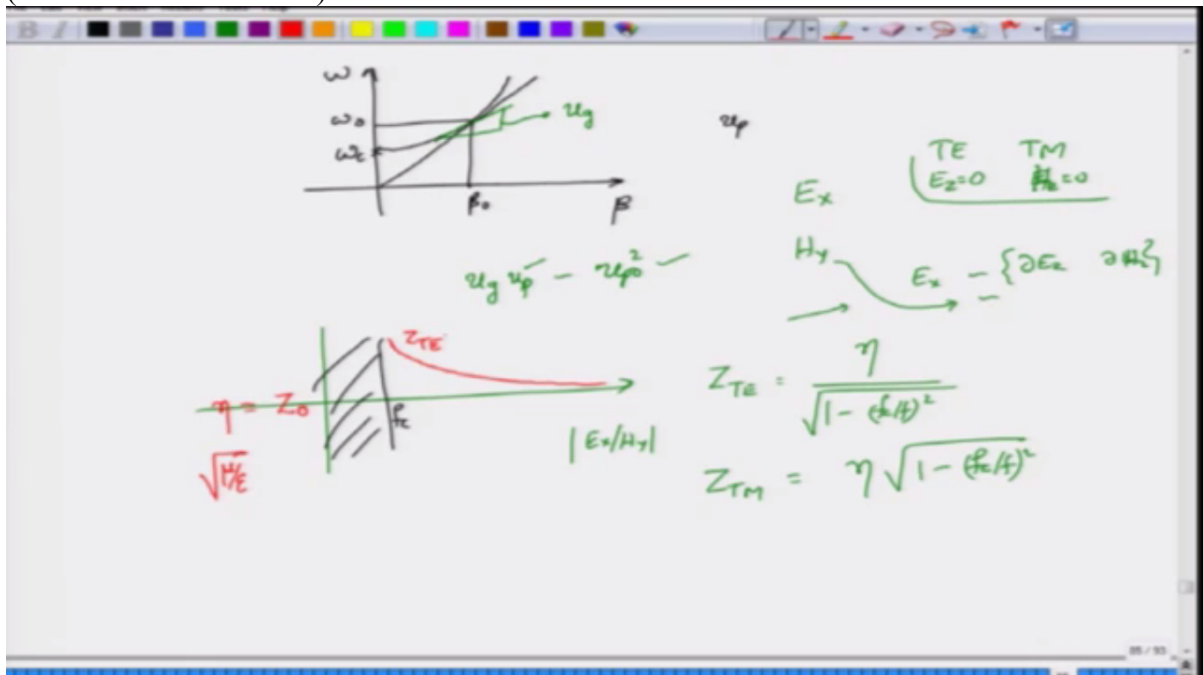 ω
ω₀
ω_c
u_g
β₀
β
u_p
TE TM
E_z=0 H_z=0
E_x
H_y
E_x – {∂E_z ∂H_z}
u_g u_p – u_p0²
Z_TE
η = Z₀
√μ/ε
f_c
|E_x/H_y|
Z_TE = η / √1 - (f_c/f)²
Z_TM = η √1 - (f_c/f)²
85 / 93